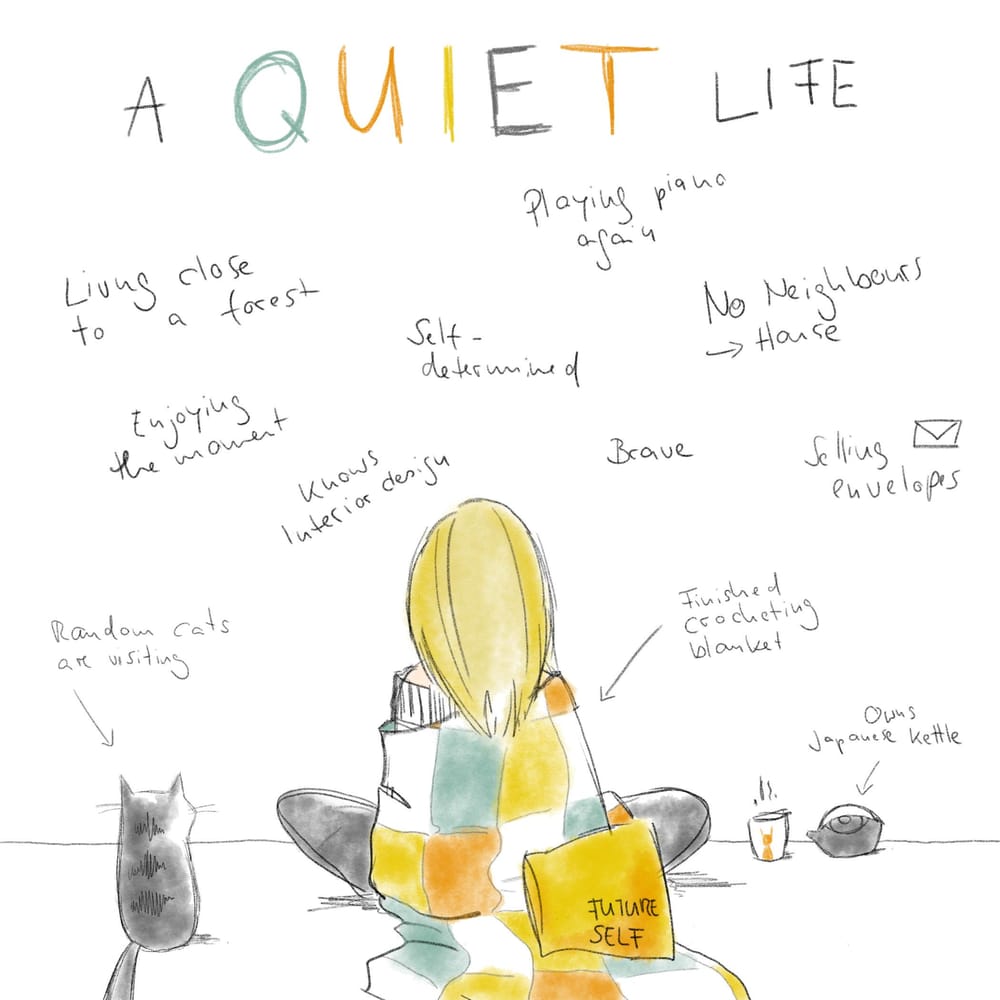 A QUIET LIFE
Playing piano
again
Living close
to a forest
No Neighbours
→ House
Self-
determined
Enjoying
the moment
Knows
Interior design
Brave
Selling
envelopes
Random cats
are visiting
Finished
crocheting
blanket
Owns
Japanese Kettle
FUTURE
SELF